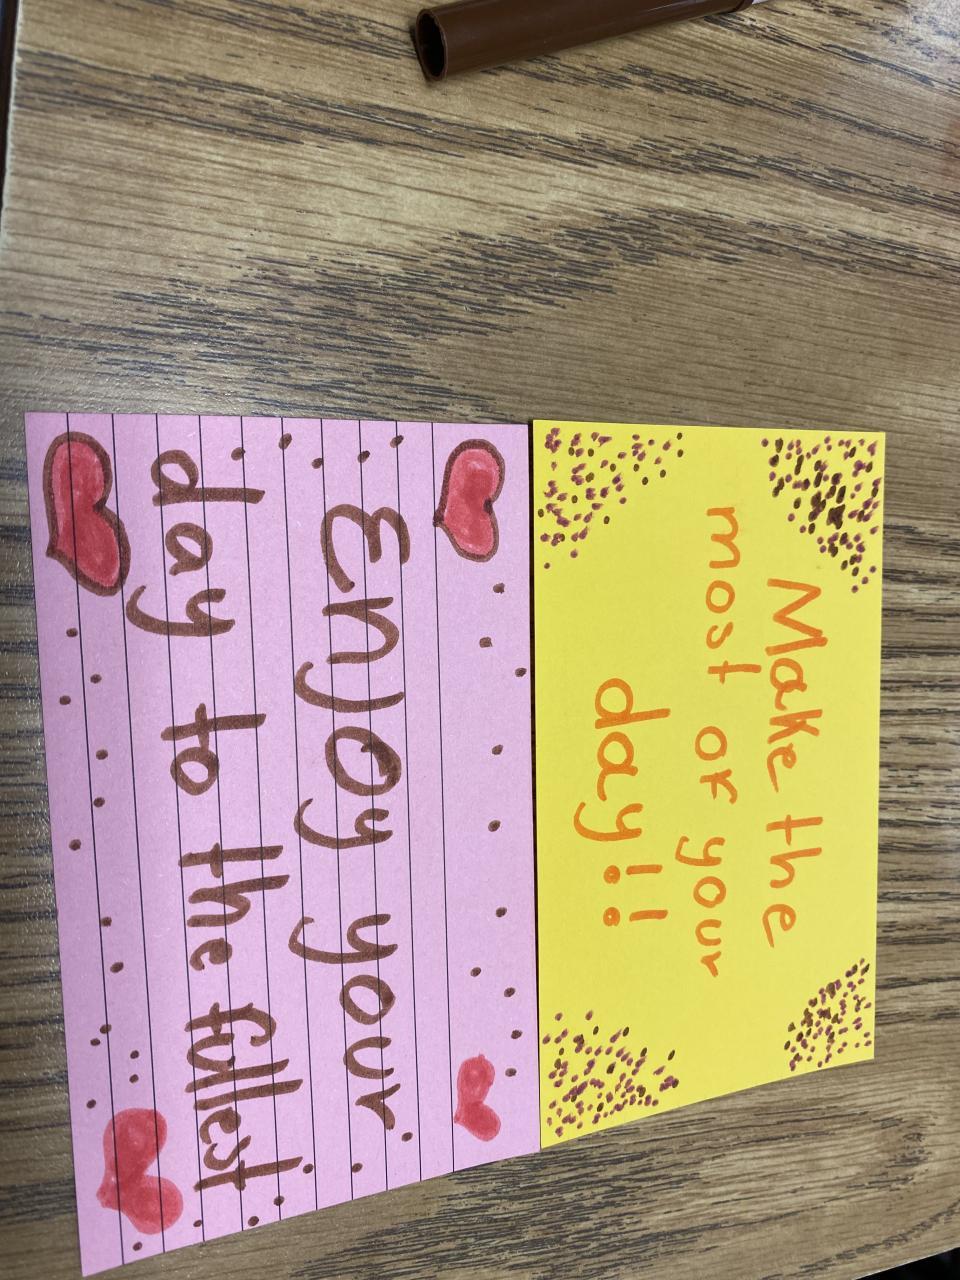 Make the
most of your
day!!
Enjoy your
day to the fullest